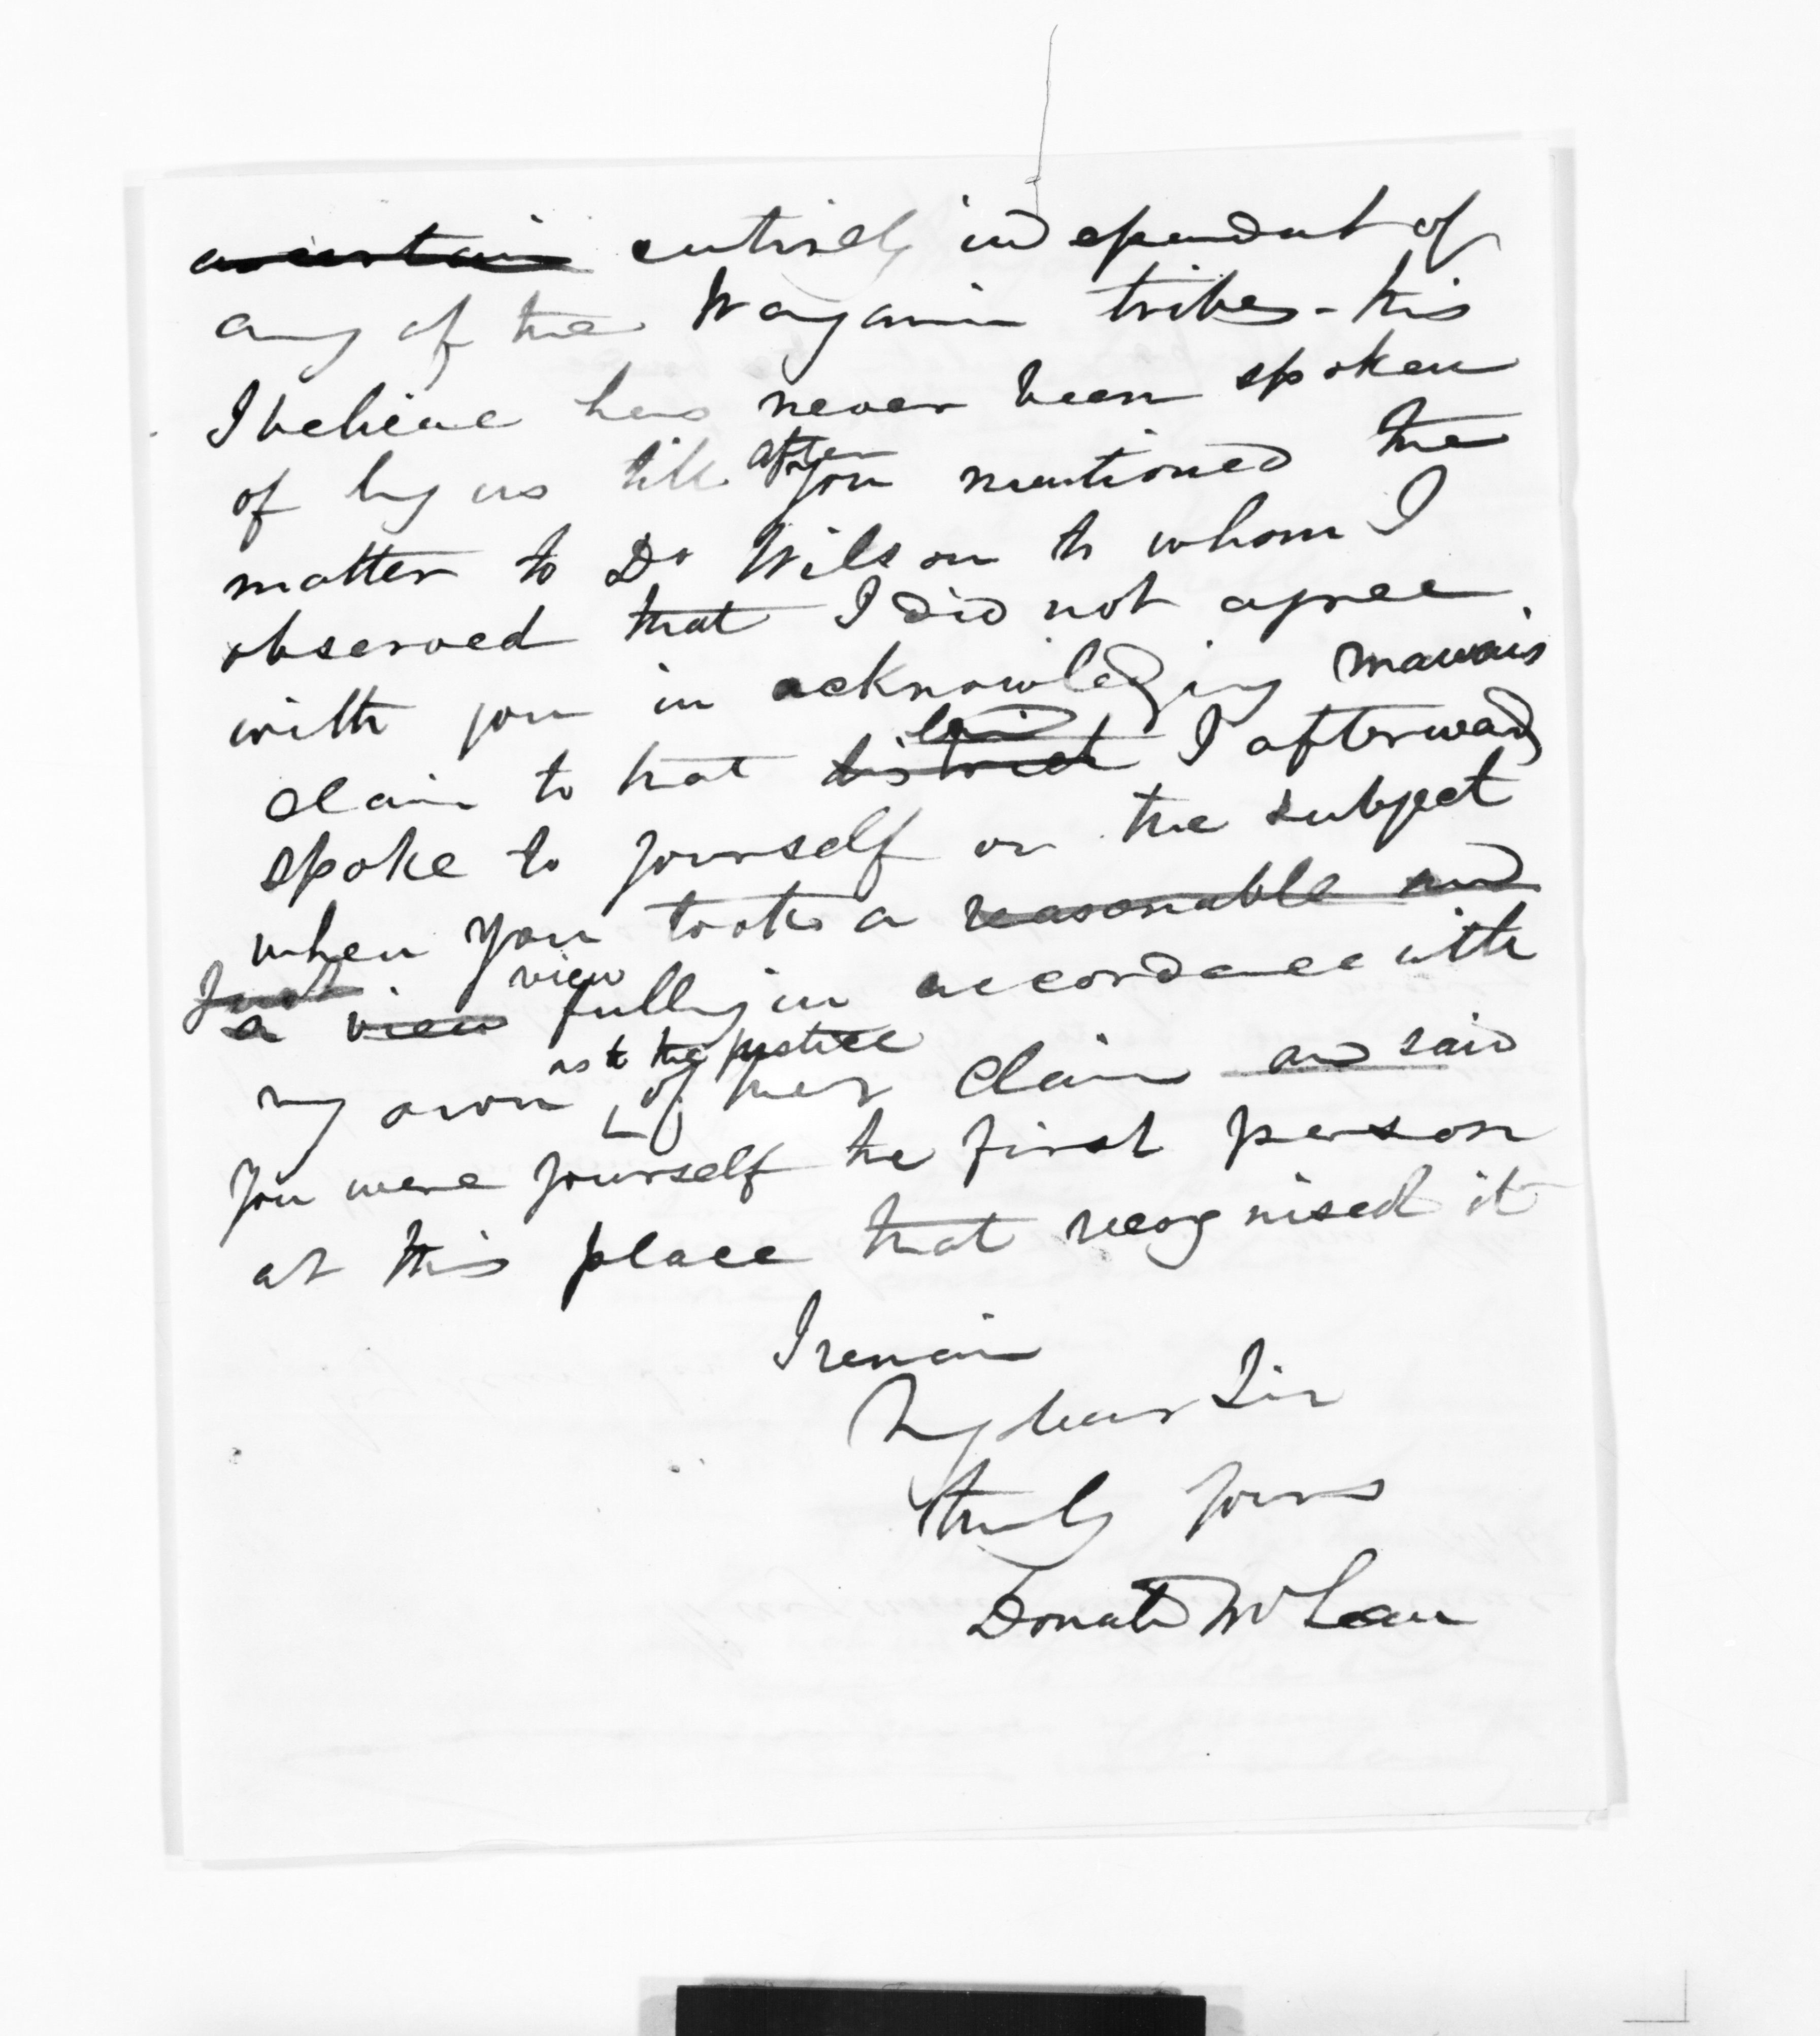 ascertain entirely independent of
any of the Wanganui tribes - this
I believe has never been spoken
of by us till after you mentioned the
matter to Dr Wilson to whom I
observed that I did not agree
with you in acknowledging Mawais
claim to that district land I afterwards
spoke to yourself on the subject
when you took a reasonable and
just
a view view fully in accordance with
my own as to the justice of her claim and said
you were yourself the first person
at this place that recognised it
I remain
My dear Sir
truly yours
Donald McLean